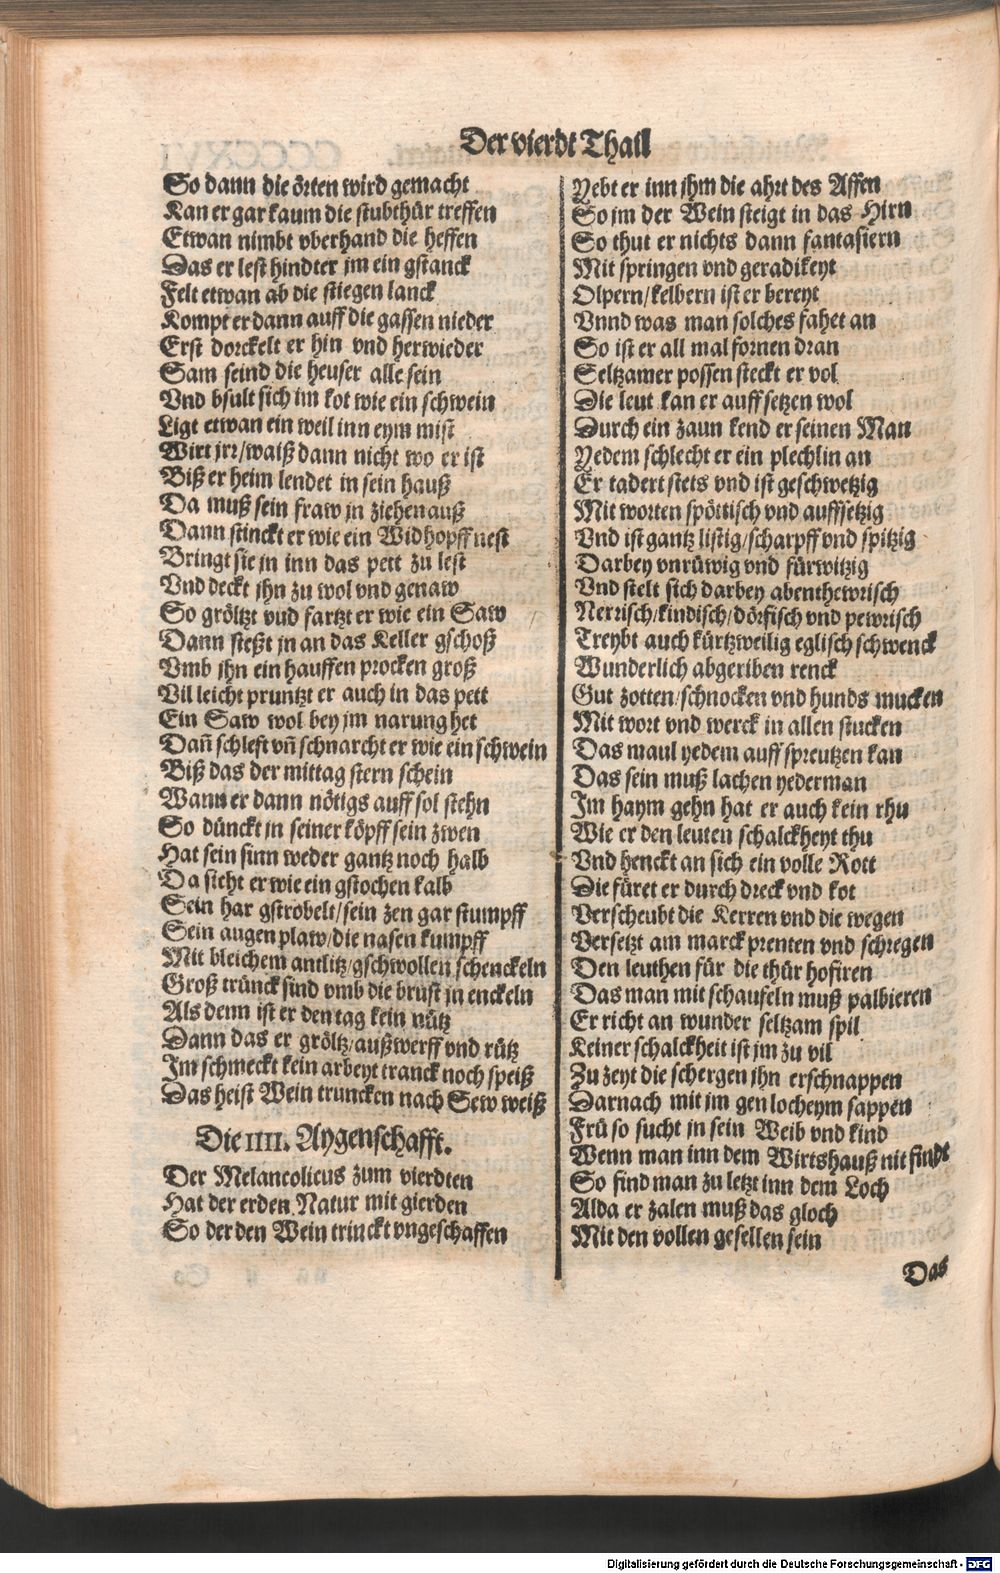 Der vierdt Thail
So dann die örten wird gemacht
Kan er gar kaum die stubthür treffen
Etwan nimbt vberhand die heffen
Das er lest hindter jm ein gstanck
Felt etwan ab die stiegen lanck
Kompt er dann auff die gassen nieder
Erst dorckelt er hin vnd herwieder
Sam seind die heuser alle sein
Vnd bsult sich im kot wie ein schwein
Ligt etwan ein weil inn eym mist
Wirt jrr/waiß dann nicht wo er ist
Biß er heim lendet in sein hauß
Da muß sein fraw jn ziehen auß
Dann stinckt er wie ein Widhopff nest
Bringt sie jn inn das pett zu lest
Vnd deckt jhn zu wol vnd genaw
So gröltzt vnd fartzt er wie ein Saw
Dann steßt jn an das Keller gschoß
Vmb jhn ein hauffen procken groß
Vil leicht pruntzt er auch in das pett
Ein Saw wol bey jm narung het
Dañ schleft vñ schnarcht er wie ein schwein
Biß das der mittag stern schein
Wann er dann nötigs auff sol stehn
So dünckt jn seiner köpff sein zwen
Hat sein sinn weder gantz noch halb
Da sicht er wie ein gstochen kalb
Sein har gstrobelt/sein zen gar stumpff
Sein augen plaw/die nasen kumpff
Mit bleichem antlitz/gschwollen schenckeln
Groß trünck sind vmb die brust jn enckeln
Als denn ist er den tag kein nütz
Dann das er gröltz/außwerff vnd rütz
Im schmeckt kein arbeyt tranck noch speiß
Das heist Wein truncken nach Sew weiß
Die IIII. Aygenschafft.
Der Melancolicus zum vierdten
Hat der erden Natur mit gierden
So der den Wein trinckt vngeschaffen
Yebt er inn jhm die ahrt des Affen
So jm der Wein steigt in das Hirn
So thut er nichts dann fantasiern
Mit springen vnd geradikeyt
Olpern/kelbern ist er bereyt
Vnnd was man solches fahet an
So ist er all mal fornen dran
Seltzamer possen steckt er vol
Die leut kan er auff setzen wol
Durch ein zaun kend er seinen Man
Yedem schlecht er ein plechlin an
Er tadert stets vnd ist geschwetzig
Mit worten spöttisch vnd auffsetzig
Vnd ist gantz listig/scharpff vnd spitzig
Darbey vnrüwig vnd fürwitzig
Vnd stelt sich darbey abenthewrisch
Nerrisch/kindisch/dörfisch vnd pewrisch
Treybt auch kürtzweilig eglisch schwenck
Wunderlich abgeriben renck
Gut zotten/schnocken vnd hunds mucken
Mit wort vnd werck in allen stucken
Das maul yedem auff spreutzen kan
Das sein muß lachen yederman
Im haym gehn hat er auch kein rhu
Wie er den leuten schalckheyt thu
Vnd henckt an sich ein volle Rott
Die füret er durch dreck vnd kot
Verscheubt die Kerren vnd die wegen
Versetzt am marck prenten vnd schregen
Den leuthen für die thür hofiren
Das man mit schaufeln muß palbieren
Er richt an wunder seltzam spil
Keiner schalckheit ist jm zu vil
Zu zeyt die schergen jhn erschnappen
Darnach mit jm gen locheym sappen
Frü so sucht in sein Weib vnd kind
Wenn man inn dem Wirtshauß nit findt
So find man zu letzt inn dem Loch
Alda er zalen muß das gloch
Mit den vollen gesellen sein
Das
Digitalisierung gefördert durch die Deutsche Forschungsgemeinschaft - DFG